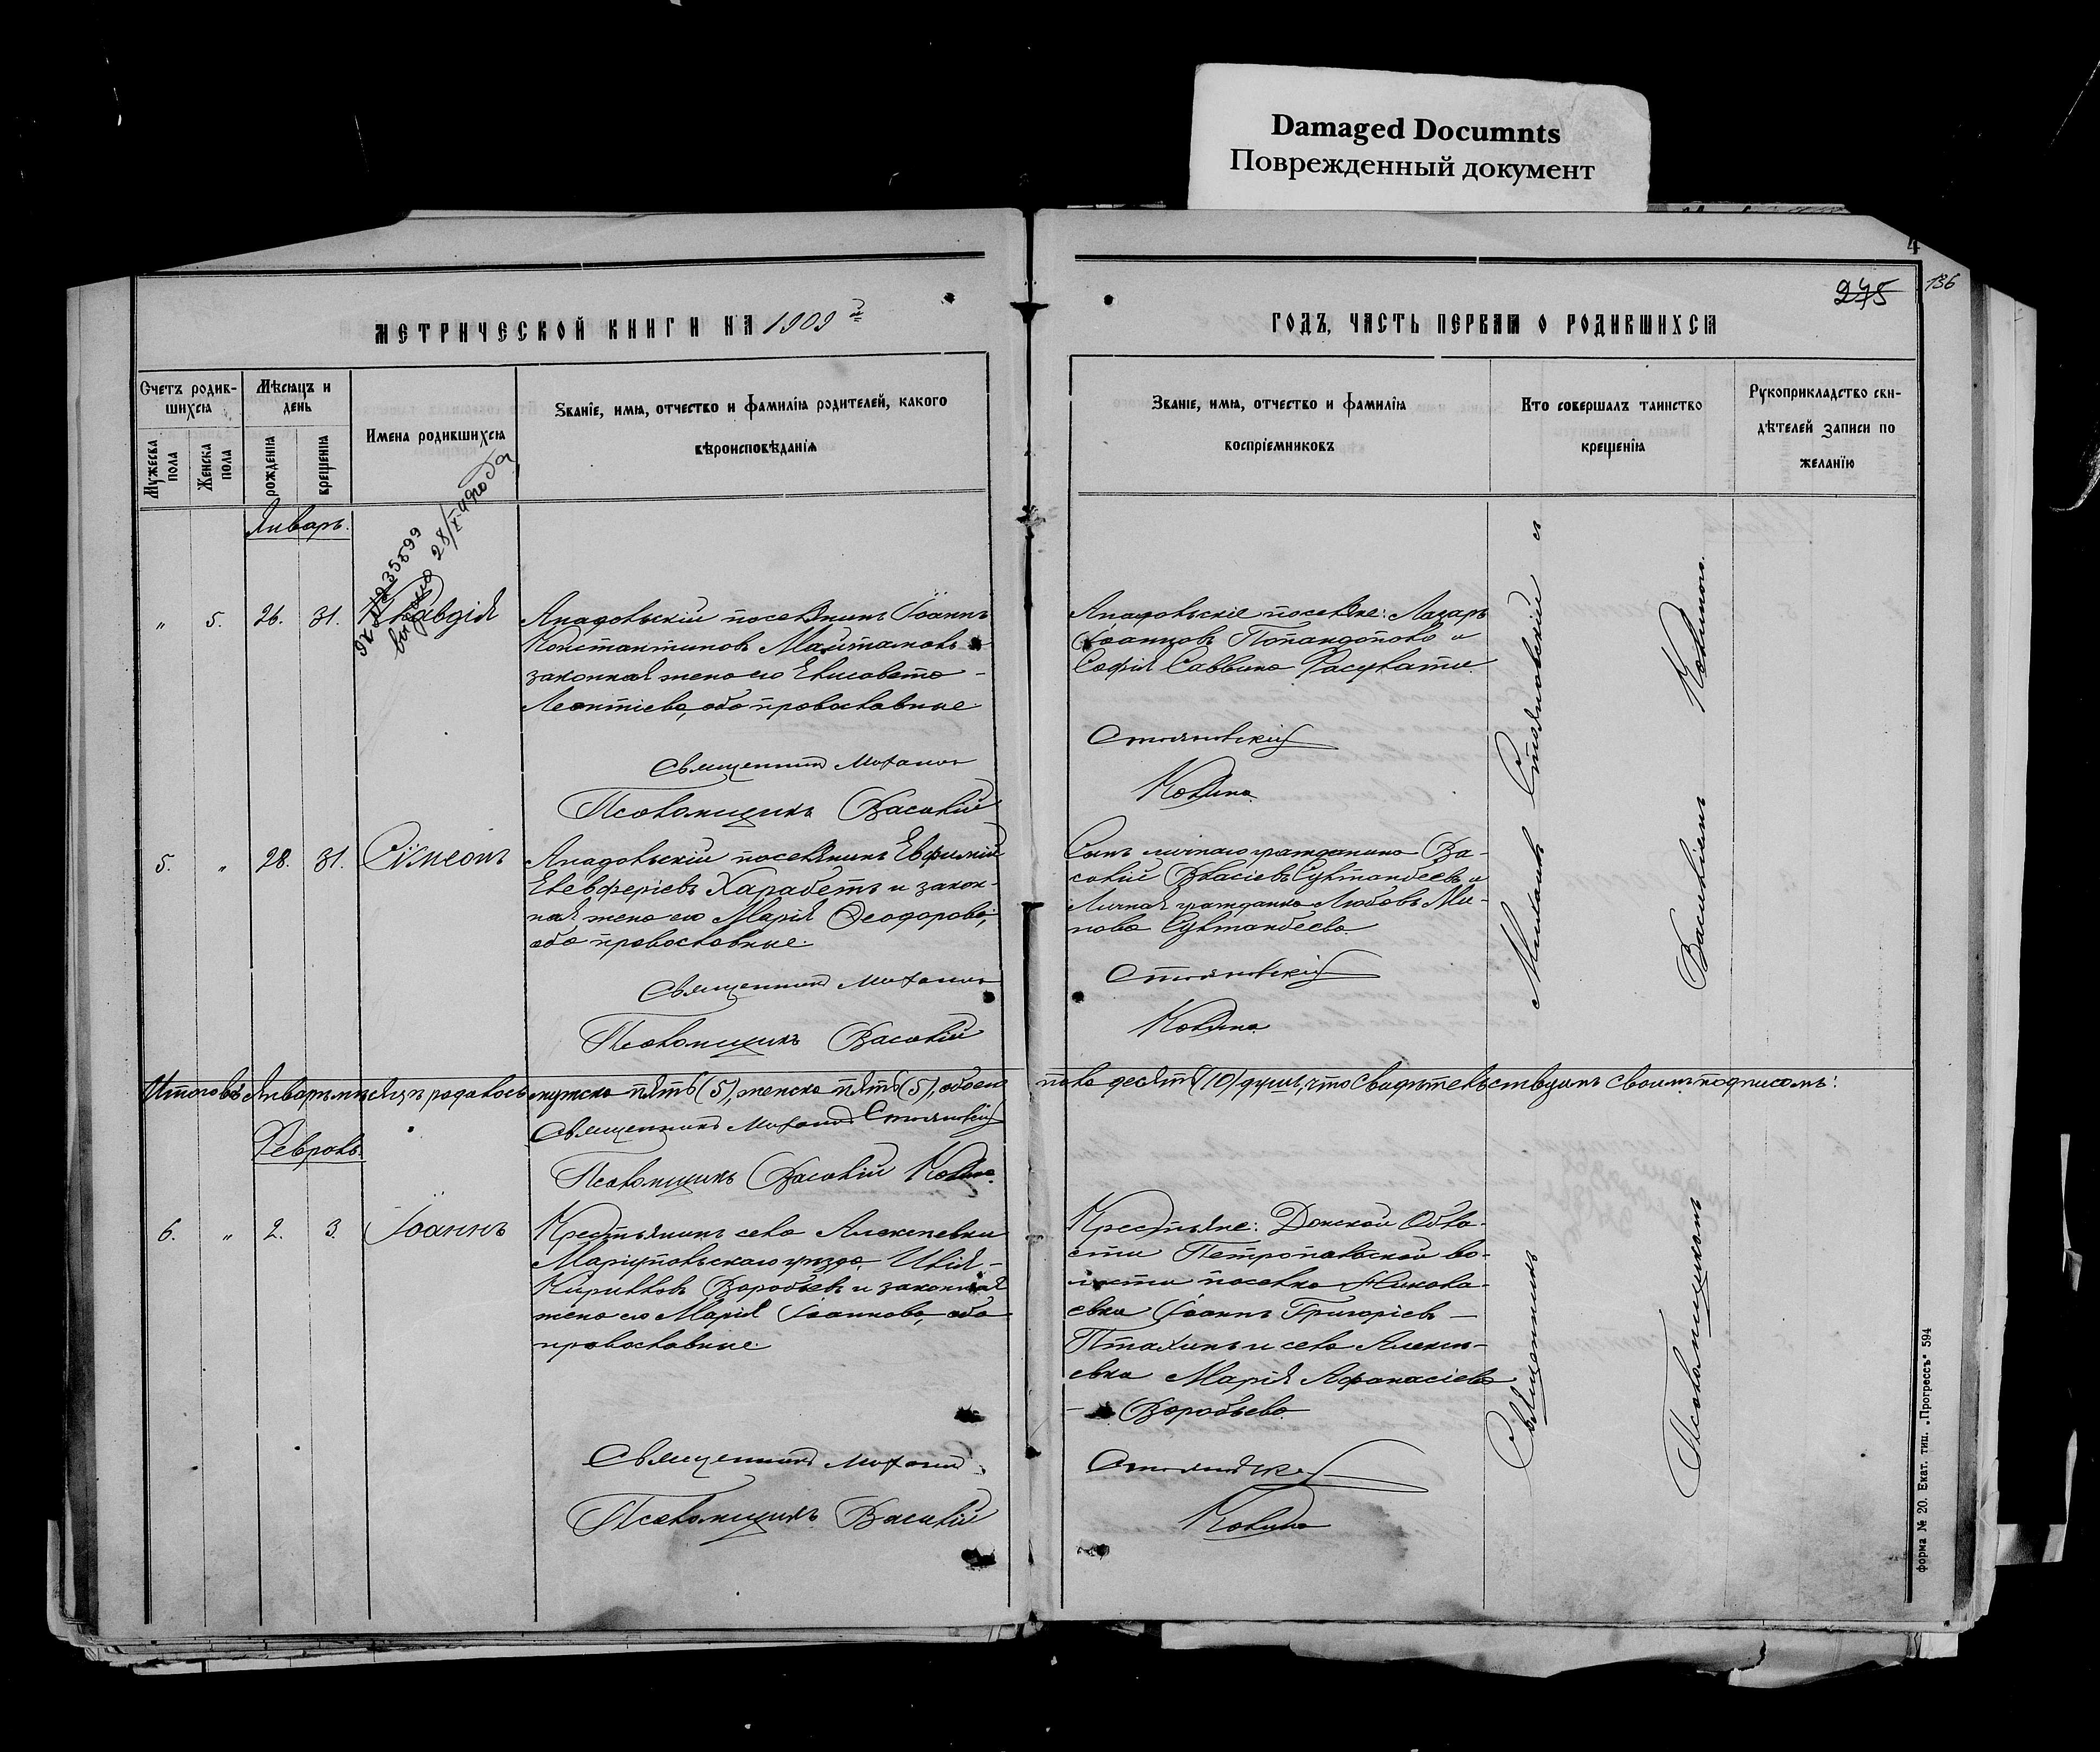 Damaged Documnts
Поврежденный документ
4
136
275
МЕТРИЧЕСКОЙ КНИГИ НА 1909 й
ГОДЪ, ЧАСТЬ ПЕРВАЯ О РОДИВШИХСЯ
Счетъ родив-
шихся
Мужеска пола
Женска пола
Мѣсяцъ и
день
рожденія
крещенія
Имена родившихся
Званіе, имя, отчество и фамилія родителей, какого
вѣроисповѣданія
Званіе, имя, отчество и фамилія
воспріемниковъ
Кто совершалъ таинство
крещенія
Рукоприкладство сви-
дѣтелей записи по
желанію
Январь.
28/X
„ 5. 26. 31. Клавдія
Анадольскій поселянинъ Іоаннъ
Константиновъ
законная жена его Елисавета
Леонтіева, оба православные.
Священникъ Михаилъ
Псаломщикъ Василій
Анадольскіе поселяне: Лазарь
Іоанновъ Попандопово и
Софія Саввина
Стояновскій
Ковина
5. „ 28. 31. Сѵмеонъ
Анадольскій поселянинъ Евфимій
Елевферіевъ Харабетъ и закон-
ная жена его Марія Ѳеодорова,
оба православные.
Священникъ Михаилъ
Псаломщикъ Василій
Сынъ личнаго гражданина Ва-
силій Власіевъ Султанбеевъ и
Личная гражданка Любовь Ми-
нова Султанбеева
Стояновскій
Ковина
Итого въ Январѣ мѣсяцѣ родилось мужска пять (5), женска пять (5), обоего
пола десять (10) душъ, что свидѣтельствуемъ своимъ подписомъ:
Священникъ Михаилъ Стояновскій
Псаломщикъ Василій Ковина
Февраль.
6. „ 2. 3. Іоаннъ
Крестьянинъ села Алексѣевки
Маріупольскаго уѣзда, Илія
Кирилловъ Воробьевъ и законная
жена его Марія Іоаннова, оба
православные.
Священникъ Михаилъ
Псаломщикъ Василій
Крестьяне: Донской Обла-
сти Петропавловской во-
лости поселка Никола-
евка Іоаннъ Григоріевъ
Птахинъ и села Алексѣ-
евка Марія Афанасіева
Воробьева.
Стояновскій
Ковина
Священникъ Михаилъ Стояновскій и
Псаломщикомъ Василіемъ Ковиною.
форма № 20. Екат. тип. „Прогрессъ" 594